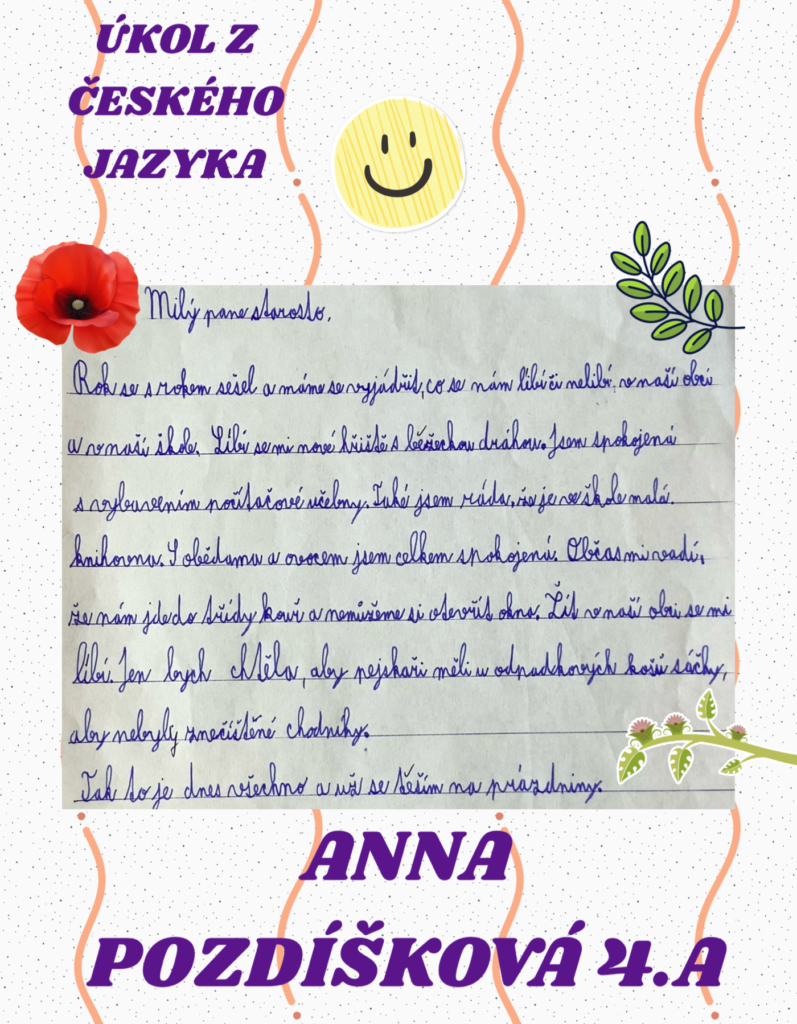 ÚKOL Z
ČESKÉHO
JAZYKA
Milý pane starosto,
Rok se s rokem sešel a máme se vyjádřit, co se nám líbí či nelibí, v naší obci
a v naší škole. Líbí se mi nové hřiště s běžeckou dráhou. Jsem spokojená
s vybavením počítačové učebny. Také jsem ráda, že je ve škole malá
knihovna. S obědama a ovocem jsem celkem spokojená. Občas mi vadí,
že nám jde do třídy kouř a nemůžeme si otevřít okno. Žít v naší obci se mi
líbí. Jen bych chtěla, aby pejskaři měli u odpadkových košů sáčky,
aby nebyly znečištěné chodníky.
Tak to je dnes všechno a už se těším na prázdniny.
ANNA
POZDÍŠKOVÁ 4.A